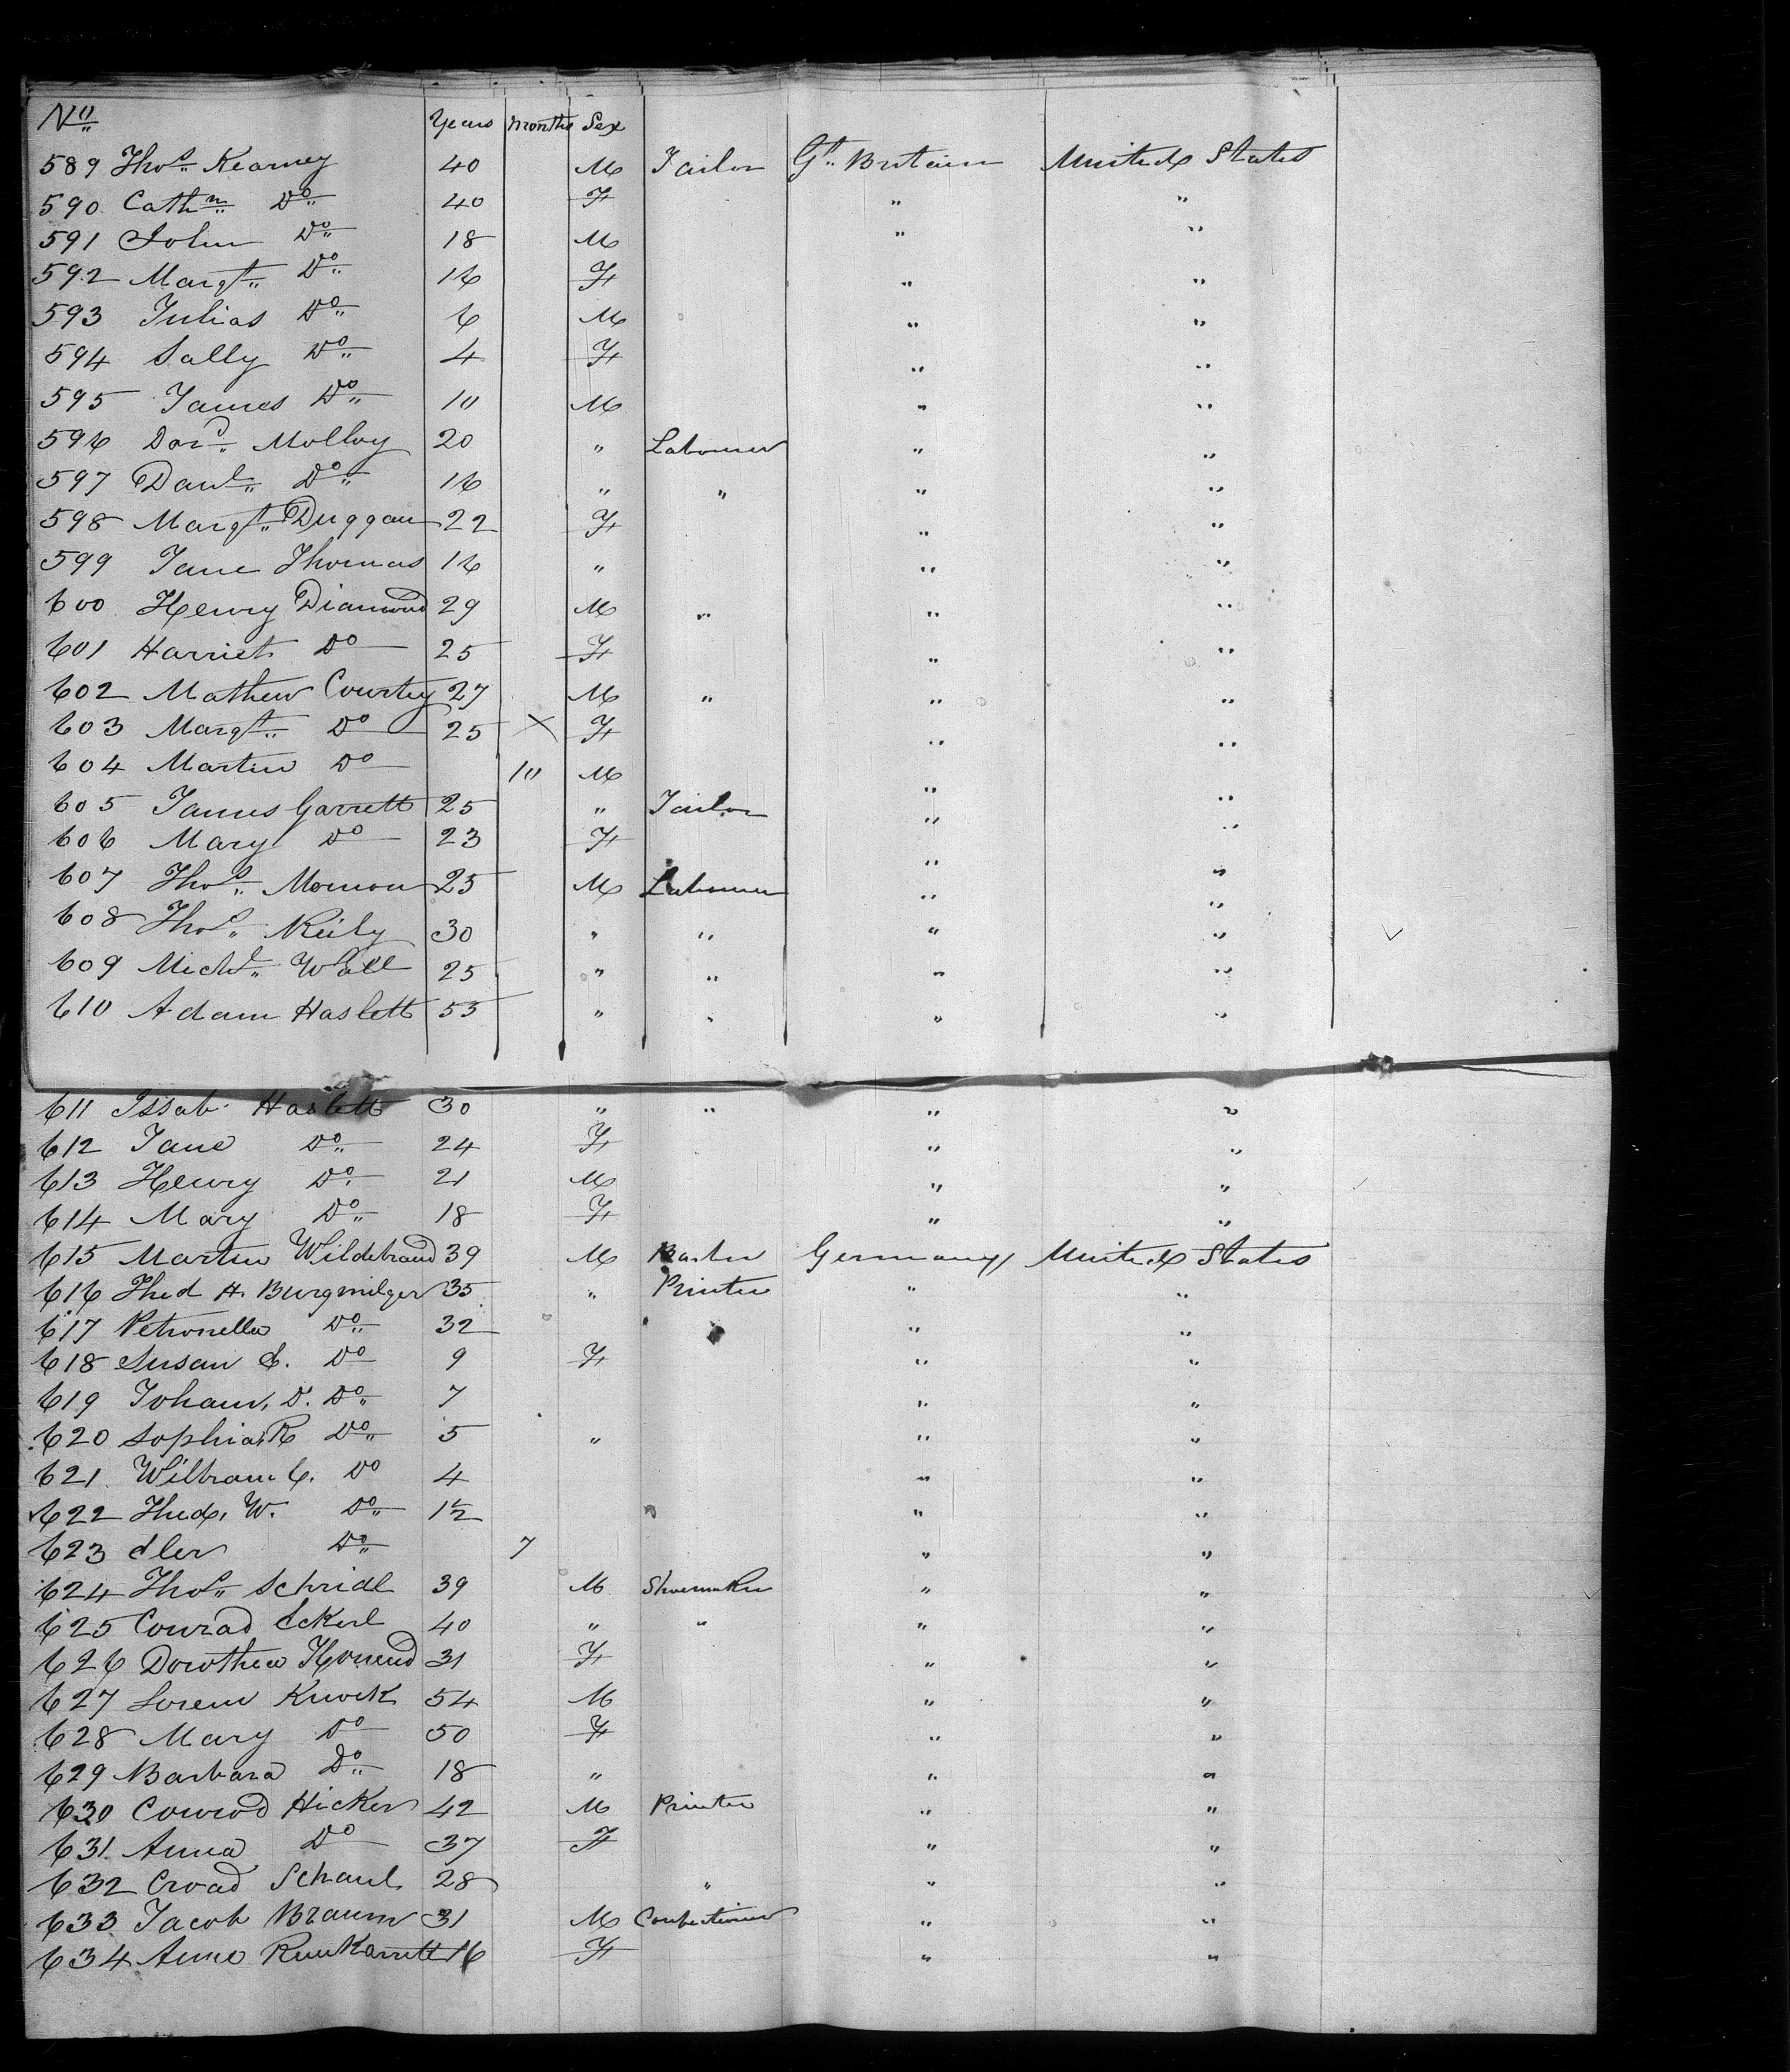 No Years Months Sex
589 Thos Kearney 40 M Tailor Gt. Britain United States
590 Cathn Do 40 F " "
591 John Do 18 M " "
592 Margt Do 16 F " "
593 Julias Do 6 M " "
594 Sally Do 4 F " "
595 James Do 10 M " "
596 Molloy 20 " Labourer " "
597 Danl Do 16 " " " "
598 Margt Duggan 22 F " "
599 Jane Thomas 16 " " "
600 Henry Diamond 29 M " " "
601 Harriet Do 25 F " "
602 Mathew Courtey 27 M " " "
603 Margt Do 25 X F " "
604 Martin Do 10 M " "
605 James Garrett 25 " Tailor " "
606 Mary Do 23 F " "
607 Thos 25 M Labourer " "
608 Thos Reily 30 " " " "
609 Michl Wall 25 " " " "
610 Adam Haslett 53 " " " "
611 Issab. Haslett 30 " " " "
612 Jane Do 24 F " "
613 Henry Do 21 M " "
614 Mary Do 18 F " "
615 Martin Wildebrand 39 M Germany United States
616 H. 35 " Printer " "
617 Petronella Do 32 " "
618 Susan Do 9 F " "
619 Johann. D. Do 7 " "
620 Sophia R Do 5 " " "
621 C. Do 4 " "
622 W. Do 1½ " "
623 Do 7 " "
624 Thos 39 M Shoemaker " "
625 Conrad 40 " " " "
626 Dorothea 31 F " "
627 54 M " "
628 Mary Do 50 F " "
629 Barbara Do 18 " " "
630 Conrod Hicker 42 M Printer " "
631 Anna Do 37 F " "
632 Croad Schaul 28 " " "
633 Jacob Braum 31 M Confectioner " "
634 Anne 16 F " "